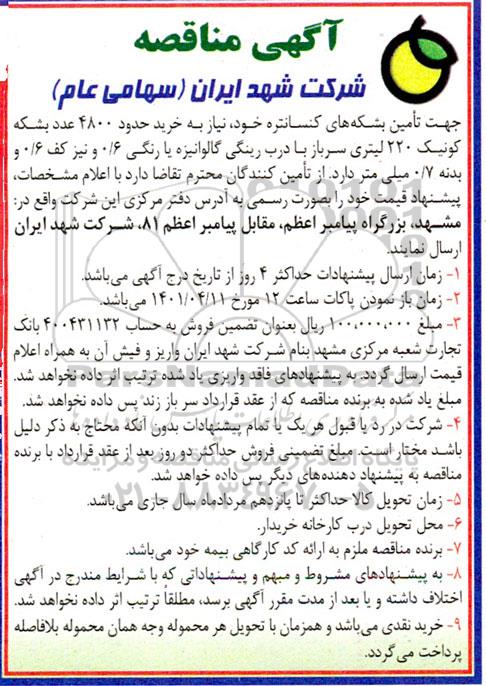 آگهی مناقصه
شرکت شهد ایران (سهامی عام)
جهت تأمین بشکه‌های کنسانتره خود، نیاز به خرید حدود ۴۸۰۰ عدد بشکه
کونیک ۲۲۰ لیتری سرباز با درب رینگی گالوانیزه یا رنگی ۰/۶ و نیز کف ۰/۶ و
بدنه ۰/۷ میلی متر دارد. از تأمین کنندگان محترم تقاضا دارد با اعلام مشخصات،
پیشنهاد قیمت خود را بصورت رسمی به آدرس دفتر مرکزی این شرکت واقع در:
مشهد، بزرگراه پیامبر اعظم، مقابل پیامبر اعظم ۸۱، شرکت شهد ایران
ارسال نمایند.
۱- زمان ارسال پیشنهادات حداکثر ۴ روز از تاریخ درج آگهی می‌باشد.
۲- زمان باز نمودن پاکات ساعت ۱۲ مورخ ۱۴۰۱/۰۴/۱۱ می‌باشد.
۳- مبلغ ۱۰۰،۰۰۰،۰۰۰ ریال بعنوان تضمین فروش به حساب ۴۰۰۴۳۱۱۳۲ بانک
تجارت شعبه مرکزی مشهد بنام شرکت شهد ایران واریز و فیش آن به همراه اعلام
قیمت ارسال گردد. به پیشنهادهای فاقد واریزی یاد شده ترتیب اثر داده نخواهد شد.
مبلغ یاد شده به برنده مناقصه که از عقد قرارداد سر باز زند پس داده نخواهد شد.
۴- شرکت در رد یا قبول هر یک یا تمام پیشنهادات بدون آنکه محتاج به ذکر دلیل
باشد مختار است. مبلغ تضمینی فروش حداکثر دو روز بعد از عقد قرارداد با برنده
مناقصه به پیشنهاد دهنده‌های دیگر پس داده خواهد شد.
۵- زمان تحویل کالا حداکثر تا پانزدهم مردادماه سال جاری می‌باشد.
۶- محل تحویل درب کارخانه خریدار.
۷- برنده مناقصه ملزم به ارائه کد کارگاهی بیمه خود می‌باشد.
۸- به پیشنهادهای مشروط و مبهم و پیشنهاداتی که با شرایط مندرج در آگهی
اختلاف داشته و یا بعد از مدت مقرر آگهی برسد، مطلقاً ترتیب اثر داده نخواهد شد.
۹- خرید نقدی می‌باشد و همزمان با تحویل هر محموله وجه همان محموله بلافاصله
پرداخت می‌گردد.